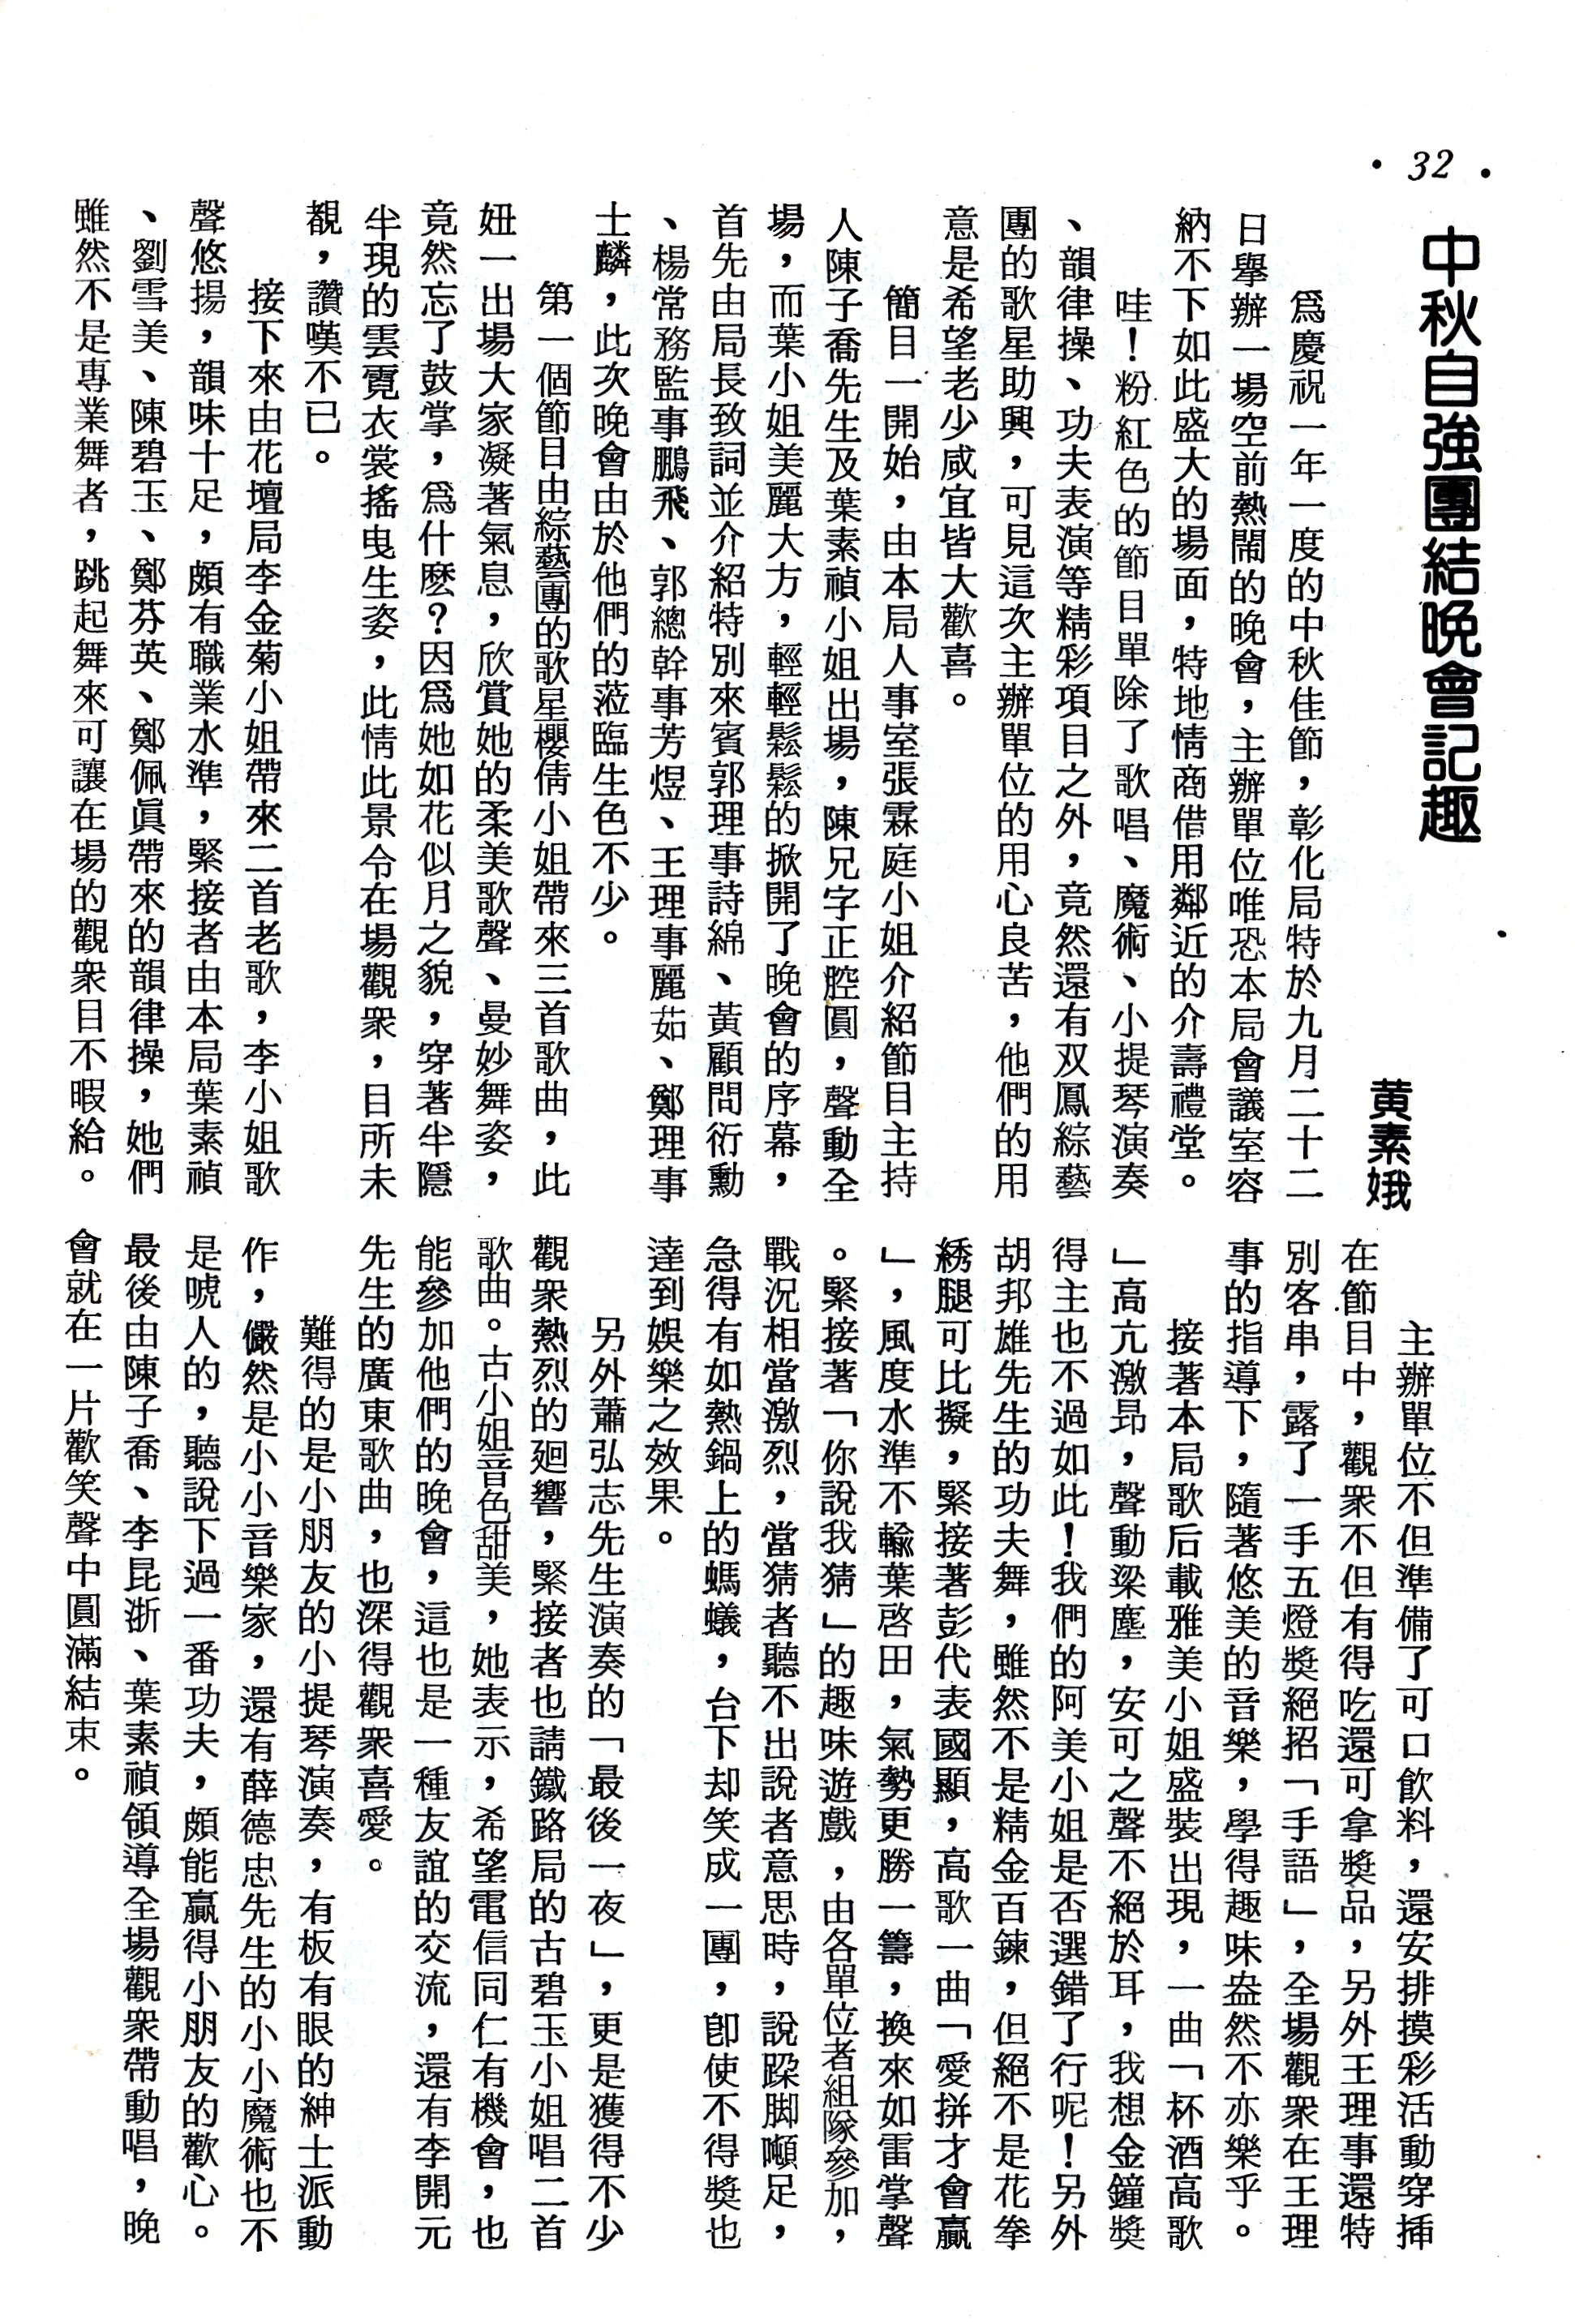 • 32 •
中秋自強團結晚會記趣
黃素娥
爲慶祝一年一度的中秋佳節，彰化局特於九月二十二
日舉辦一場空前熱鬧的晚會，主辦單位唯恐本局會議室容
納不下如此盛大的場面，特地情商借用鄰近的介壽禮堂。
哇！粉紅色的節目單除了歌唱、魔術、小提琴演奏
、韻律操、功夫表演等精彩項目之外，竟然還有双鳳綜藝
團的歌星助興，可見這次主辦單位的用心良苦，他們的用
意是希望老少咸宜皆大歡喜。
簡目一開始，由本局人事室張霖庭小姐介紹節目主持
人陳子喬先生及葉素禎小姐出場，陳兄字正腔圓，聲動全
場，而葉小姐美麗大方，輕輕鬆鬆的掀開了晚會的序幕，
首先由局長致詞並介紹特別來賓郭理事詩綿、黃顧問衍勳
、楊常務監事鵬飛、郭總幹事芳煜、王理事麗茹、鄭理事
士麟，此次晚會由於他們的蒞臨生色不少。
第一個節目由綜藝團的歌星櫻倩小姐帶來三首歌曲，此
妞一出場大家凝著氣息，欣賞她的柔美歌聲、曼妙舞姿，
竟然忘了鼓掌，爲什麽？因爲她如花似月之貌，穿著半隱
半現的雲霓衣裳搖曳生姿，此情此景令在場觀衆，目所未
覩，讚嘆不已。
接下來由花壇局李金菊小姐帶來二首老歌，李小姐歌
聲悠揚，韻味十足，頗有職業水準，緊接者由本局葉素禎
、劉雪美、陳碧玉、鄭芬英、鄭佩眞帶來的韻律操，她們
雖然不是專業舞者，跳起舞來可讓在場的觀衆目不暇給。
主辦單位不但準備了可口飲料，還安排摸彩活動穿插
在節目中，觀衆不但有得吃還可拿獎品，另外王理事還特
別客串，露了一手五燈獎絕招「手語」，全場觀衆在王理
事的指導下，隨著悠美的音樂，學得趣味盎然不亦樂乎。
接著本局歌后載雅美小姐盛裝出現，一曲「杯酒高歌
」高亢激昂，聲動梁塵，安可之聲不絕於耳，我想金鐘獎
得主也不過如此！我們的阿美小姐是否選錯了行呢！另外
胡邦雄先生的功夫舞，雖然不是精金百鍊，但絕不是花拳
綉腿可比擬，緊接著彭代表國顯，高歌一曲「愛拼才會贏
」，風度水準不輸葉啓田，氣勢更勝一籌，換來如雷掌聲
。緊接著「你說我猜」的趣味遊戲，由各單位者組隊參加，
戰況相當激烈，當猜者聽不出說者意思時，說跺脚噸足，
急得有如熱鍋上的螞蟻，台下却笑成一團，卽使不得獎也
達到娛樂之效果。
另外蕭弘志先生演奏的「最後一夜」，更是獲得不少
觀衆熱烈的廻響，緊接者也請鐵路局的古碧玉小姐唱二首
歌曲。古小姐音色甜美，她表示，希望電信同仁有機會，也
能參加他們的晚會，這也是一種友誼的交流，還有李開元
先生的廣東歌曲，也深得觀衆喜愛。
難得的是小朋友的小提琴演奏，有板有眼的紳士派動
作，儼然是小小音樂家，還有薛德忠先生的小小魔術也不
是唬人的，聽說下過一番功夫，頗能贏得小朋友的歡心。
最後由陳子喬、李昆浙、葉素禎領導全場觀衆帶動唱，晚
會就在一片歡笑聲中圓滿結束。